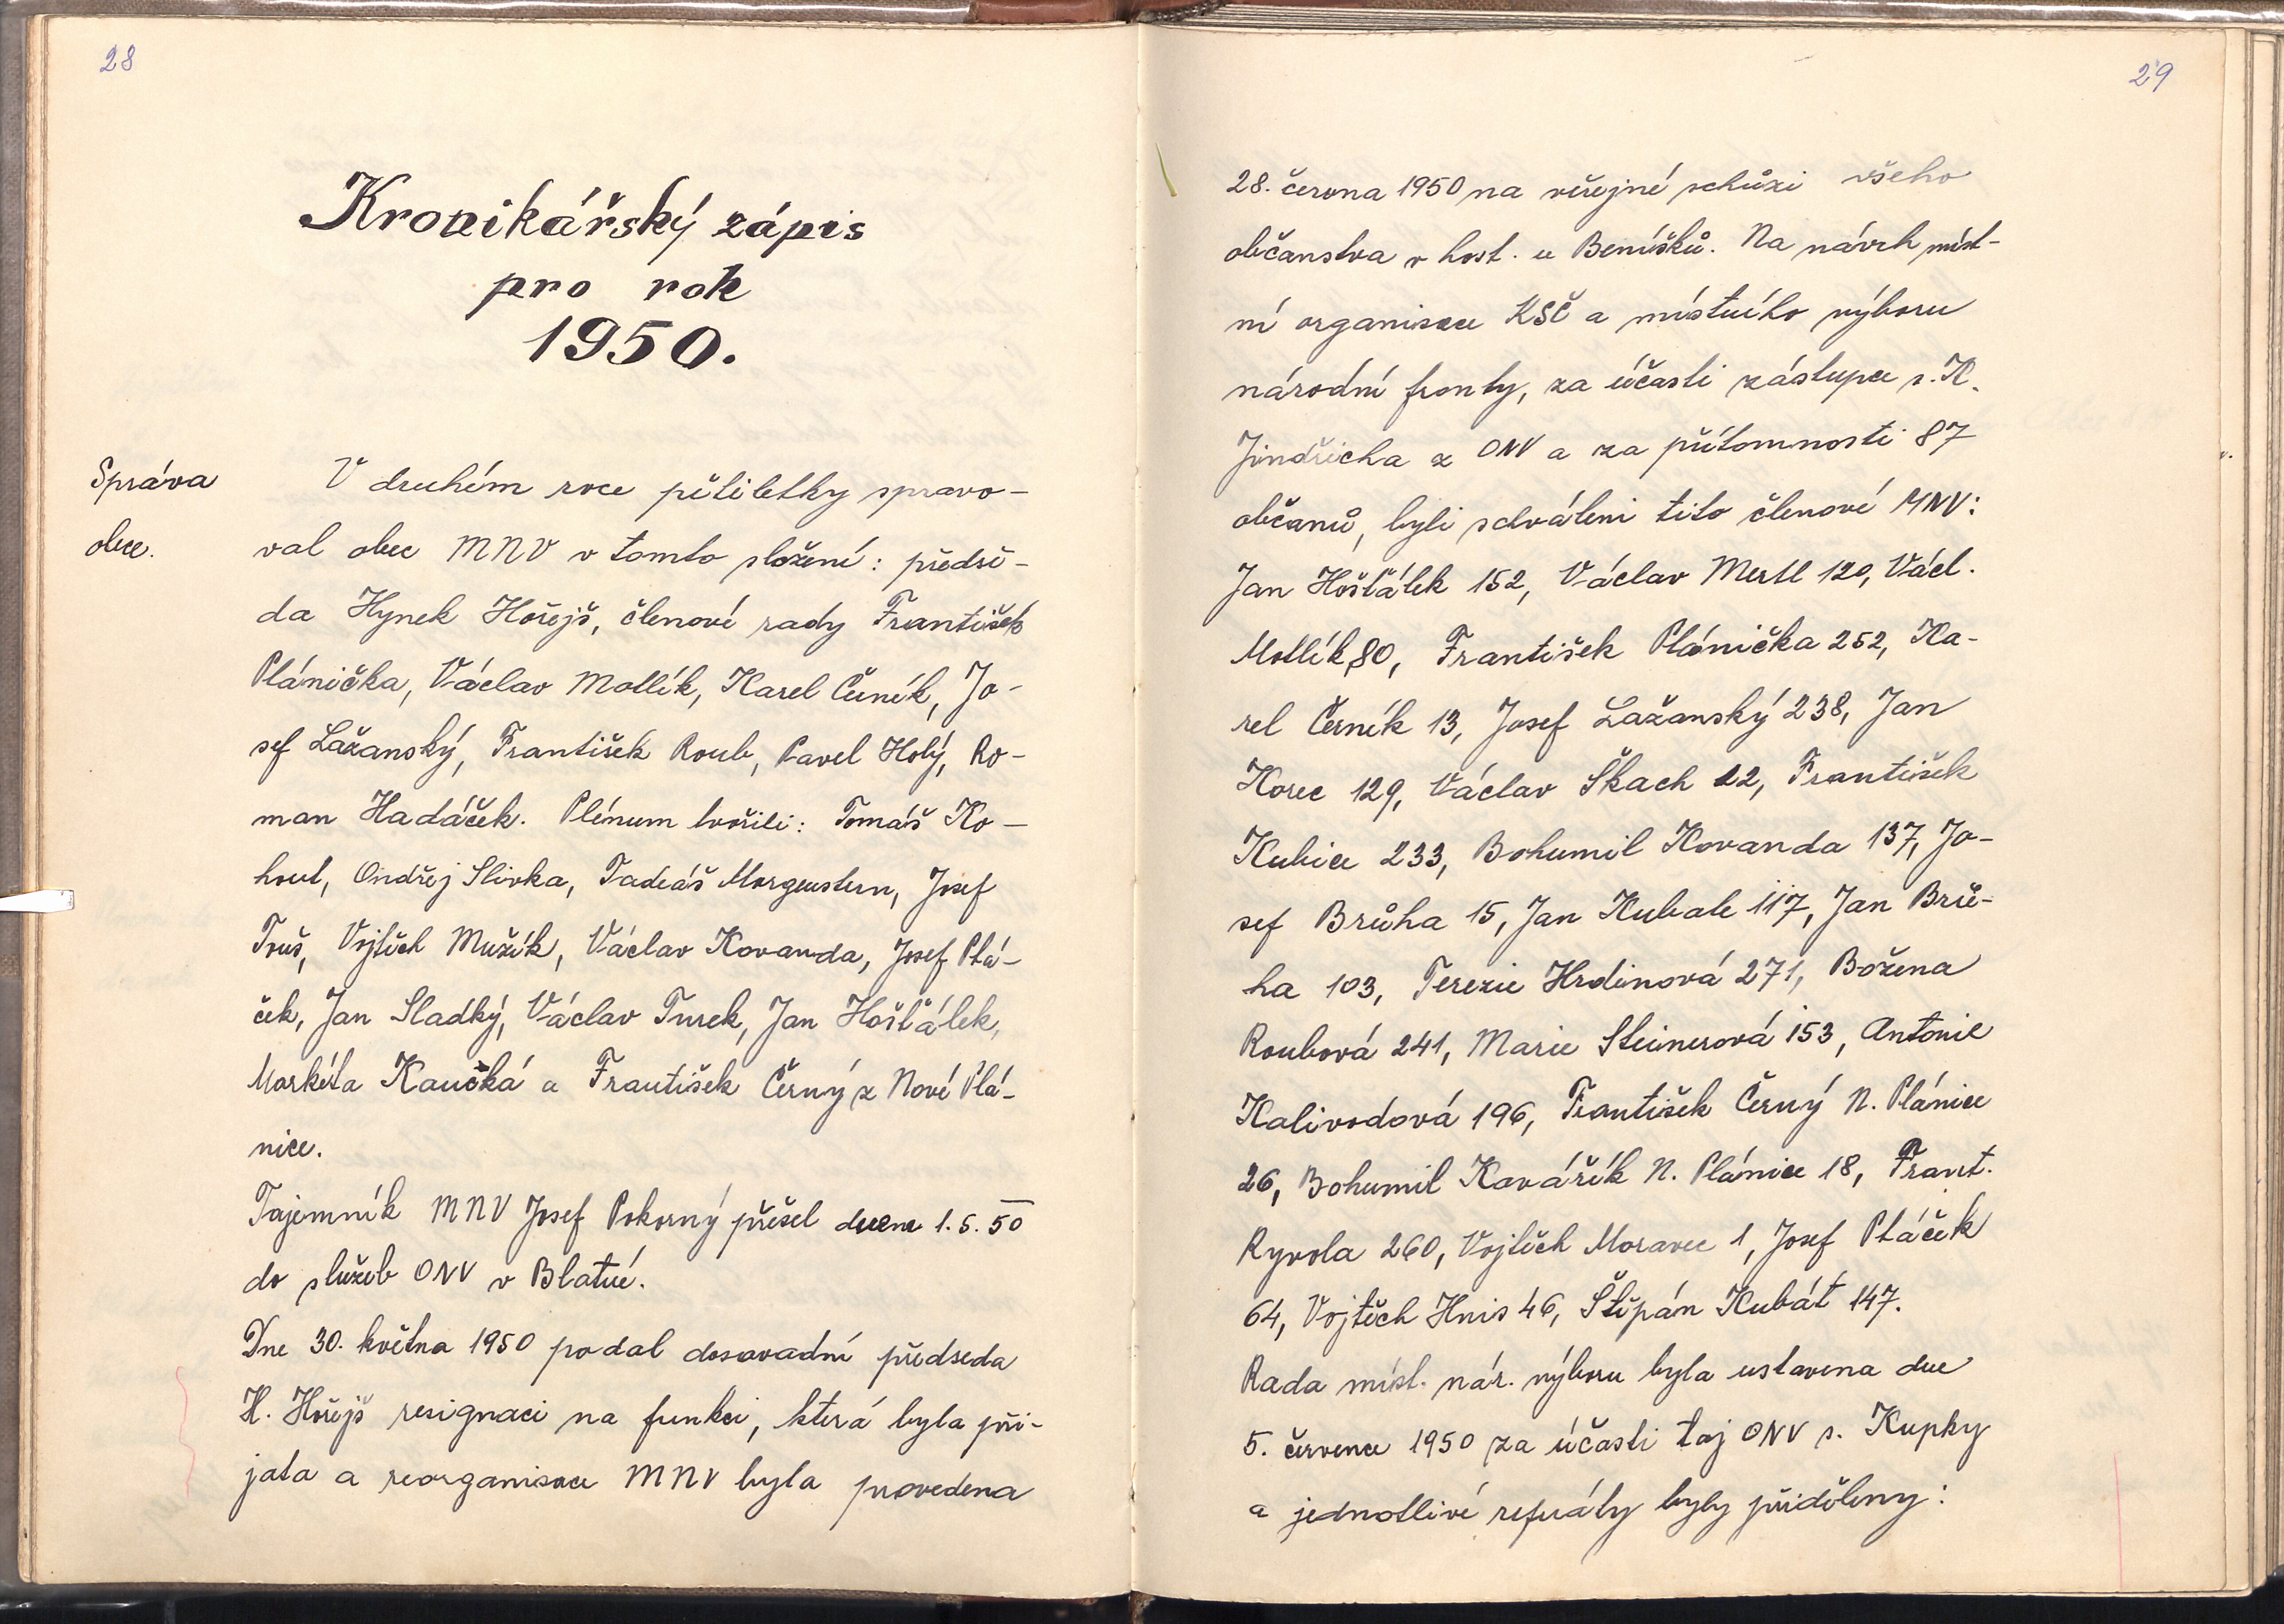 28
Kronikářský zápis
pro rok
1950.
Správa
obce.
V druhém roce pětiletky spravo-
val obec MNV v tomto složení: předse-
da Hynek Hořejš, členové rady František
Plánička, Václav Motlík, Karel Černík, Jo-
sef Lažanský, František Roub, Pavel Holý, Ro-
man Hadáček. Plénum tvořili: Tomáš Ko-
hout, Ondřej Slivka, Tadeáš Morgenstern, Josef
Touš, Vojtěch Mužík, Václav Kovanda, Josef Ptá-
ček, Jan Sladký, Václav Turek, Jan Hošťálek,
Markéta Kaucká a František Černý z Nové Plá-
nice.
Tajemník MNV Josef Pokorný přešel dnem 1.5.50
do služeb ONV v Blatné.
Dne 30. května 1950 podal dosavadní předseda
H. Hořejš resignaci na funkci, která byla při-
jata a reorganisace MNV byla provedena
29
28. června 1950 na veřejné schůzi všeho
občanstva v host. u Beníšků. Na návrh míst-
ní organisace KSČ a místního výboru
národní fronty, za účasti zástupce s. K.
Jindřicha z ONV a za přítomnosti 87
občanů, byli schváleni tito členové MNV:
Jan Hošťálek 152, Václav Mertl 120, Václ.
Motlík 80, František Plánička 252, Ka-
rel Černík 13, Josef Lažanský 238, Jan
Korec 129, Václav Škach 22, František
Kubice 233, Bohumil Kovanda 137, Jo-
sef Brůha 15, Jan Kubale 117, Jan Brů-
ha 103, Terezie Hrdinová 271, Božena
Roubová 241, Marie Steinerová 153, Antonie
Kalivodová 196, František Černý N. Plánice
26, Bohumil Kavářík N. Plánice 18, Frant.
Ryvola 260, Vojtěch Moravec 1, Josef Ptáček
64, Vojtěch Hnis 46, Štěpán Kubát 147.
Rada míst. nár. výboru byla ustavena dne
5. července 1950 za účasti taj ONV s. Kupky
a jednotlivé referáty byly přiděleny: